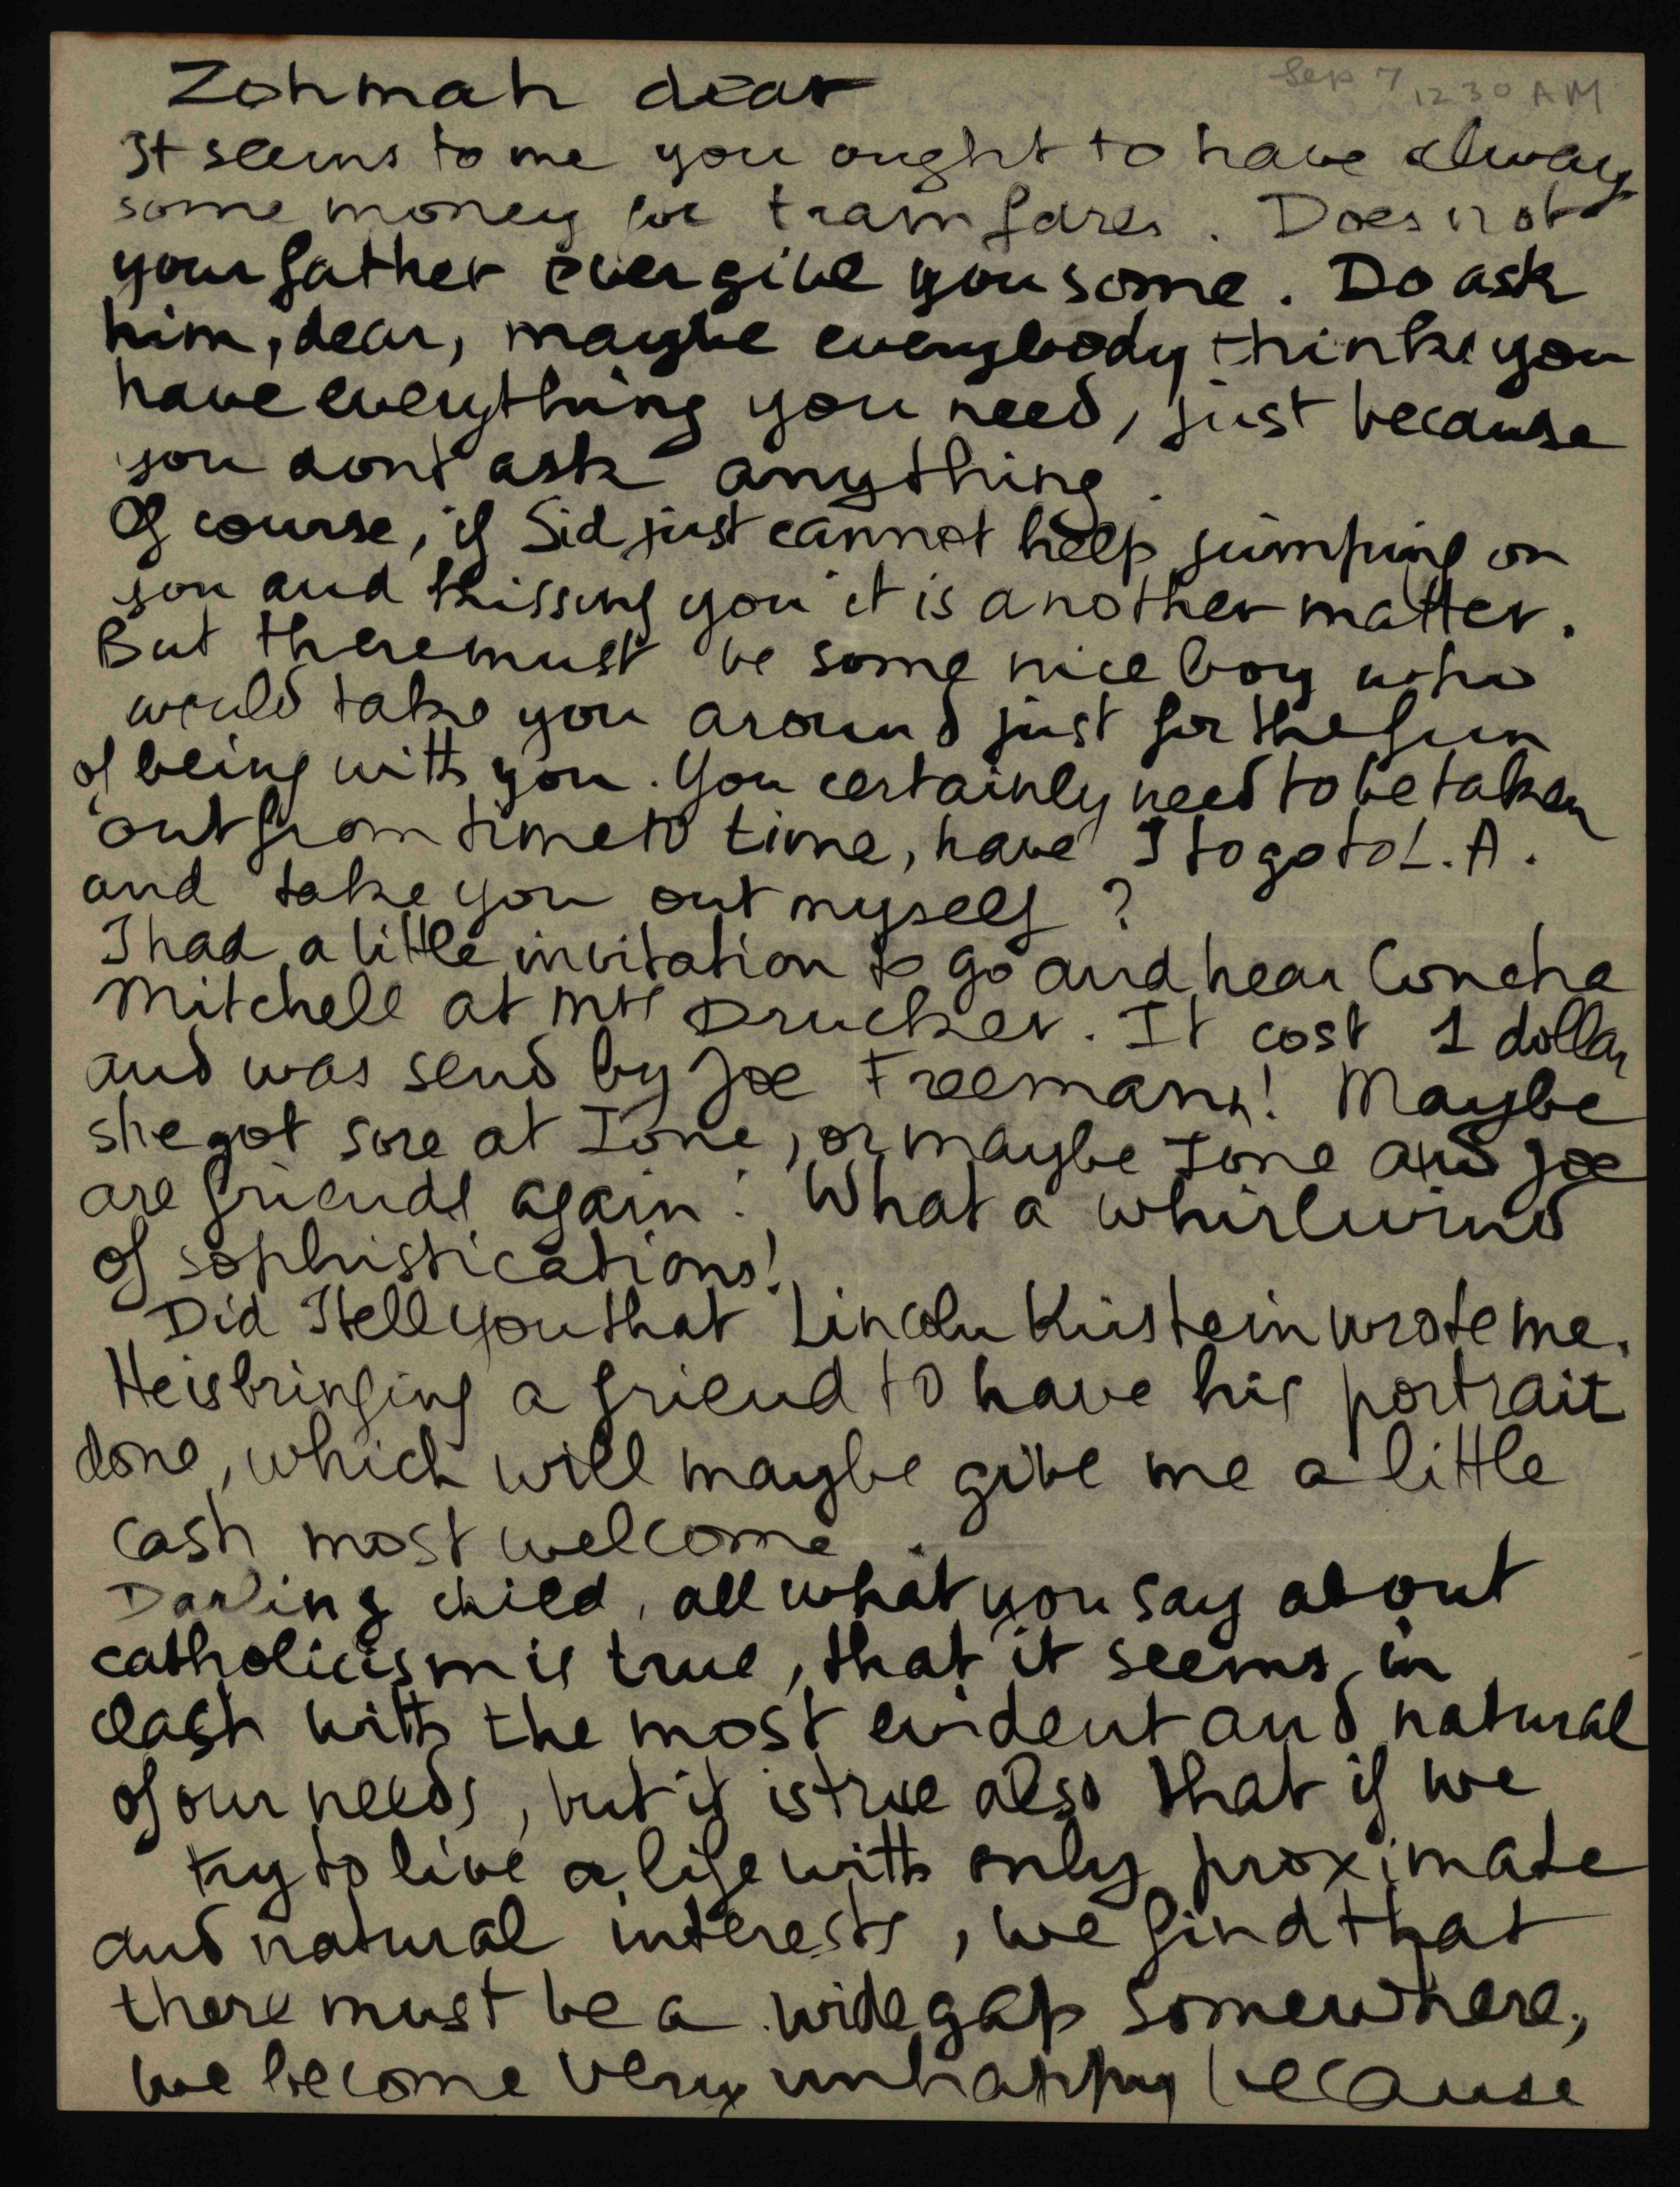 Sep 7 12 30 AM
Zohmah dear
It seems to me you ought to have always
some money for tram fares. Does not
your father ever give you some. Do ask
him, dear, maybe everybody thinks you
have everything you need, just because
you dont ask anything.
Of course, if Sid just cannot help jumping on
you and kissing you it is another matter.
But there must be some nice boy who
would take you around just for the fun
of being with you. You certainly need to be taken
out from time to time, have I to go to L.A.
and take you out myself?
I had a little invitation to go and hear Concha
Mitchell at Mrs Drucker. It cost 1 dollar
and was send by Joe Freeman! Maybe
she got sore at Ione, or maybe Ione and Joe
are friends again! What a whirlwind
of sophistications!
Did I tell you that Lincoln Kirstein wrote me.
He is bringing a friend to have his portrait
done, which will maybe give me a little
cash most welcome.
Darling child, all what you say about
catholicism is true, that it seems in
clash with the most evident and natural
of our needs, but it is true also that if we
try to live a life with only proximate
and natural interests, we find that
there must be a wide gap somewhere,
we become very unhappy because